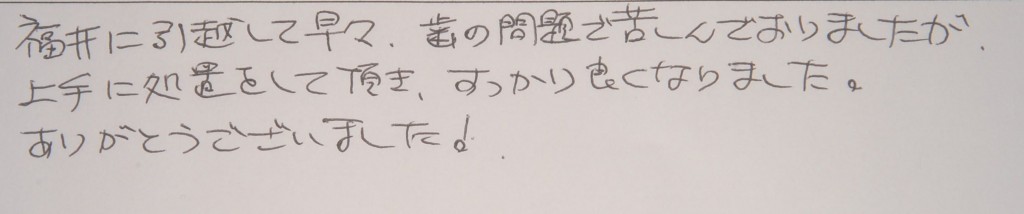 福井に引越して早々、歯の問題で苦しんでおりましたが、
上手に処置をして頂き、すっかり良くなりました。
ありがとうございました!